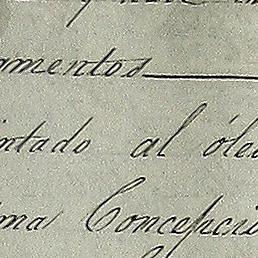 amentos
intado al óleo
ima Concepció